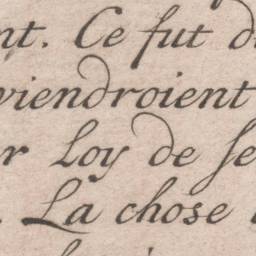 nt. Ce fut d
viendroient
r Loy de se
. La chose